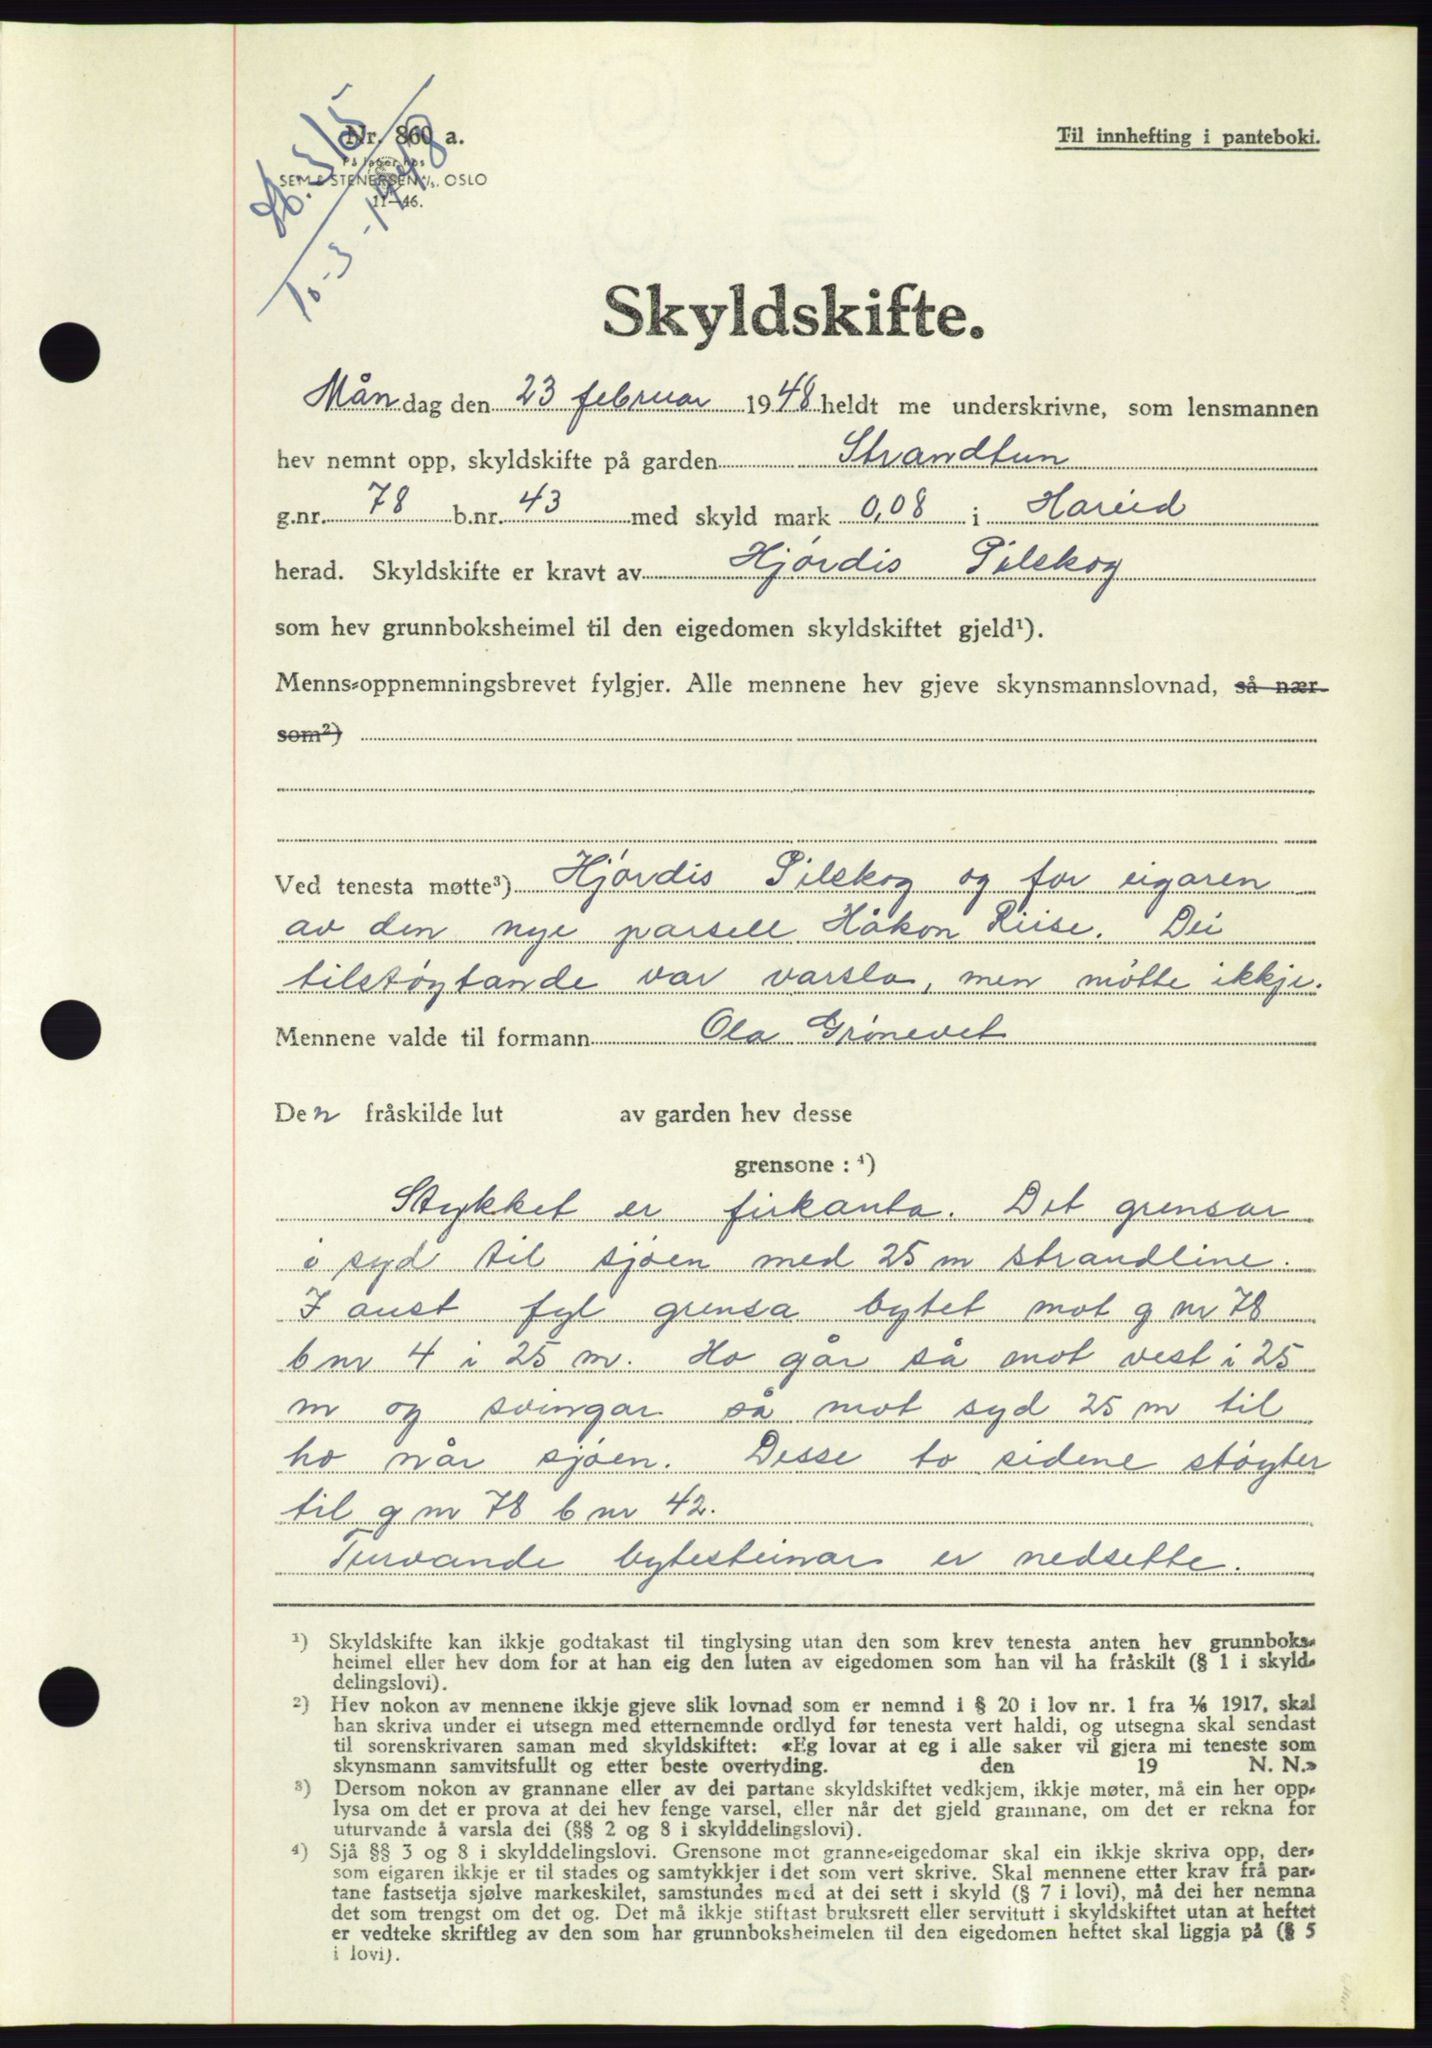 Nr. 860 a.
Til innhefting i panteboki.
På lager hos
SEM & STENERSEN A/S. OSLO
11—46.
315
10-3-1948
Skyldskifte.
Måndag den 23 februar 1948 heldt me underskrivne, som lensmannen
hev nemnt opp, skyldskifte på garden Strandtun
g.nr. 78 b.nr. 43 med skyld mark 0,08 i Hareid
herad. Skyldskifte er kravt av Hjördis Pilskog
som hev grunnboksheimel til den eigedomen skyldskiftet gjeld¹).
Menns-oppnemningsbrevet fylgjer. Alle mennene hev gjeve skynsmannslovnad, så nær
som²)
Ved tenesta møtte³) Hjördis Pilskog og for eigaren
av den nye parsell Håkon Riise. Dei
tilstøytande var varsla, men møtte ikkje.
Mennene valde til formann Ola Grönevet
Den fråskilde lut av garden hev desse
grensone : ⁴)
Stykket er firkanta. Det grensar
i syd til sjøen med 25 m strandline.
I aust fyl grensa bytet mot g nr 78
b nr 4 i 25 m. Ho går så mot vest i 25
m og svingar så mot syd 25 m til
ho når sjøen. Desse to sidene støyter
til g nr 78 b nr 42.
Turvande bytesteinar er nedsette.
¹) Skyldskifte kan ikkje godtakast til tinglysing utan den som krev tenesta anten hev grunnboks-
heimel eller hev dom for at han eig den luten av eigedomen som han vil ha fråskilt (§ 1 i skyld-
delingslovi).
²) Hev nokon av mennene ikkje gjeve slik lovnad som er nemnd i § 20 i lov nr. 1 fra 1/6 1917, skal
han skriva under ei utsegn med etternemnde ordlyd før tenesta vert haldi, og utsegna skal sendast
til sorenskrivaren saman med skyldskiftet: «Eg lovar at eg i alle saker vil gjera mi teneste som
skynsmann samvitsfullt og etter beste overtyding. den 19 N. N.»
³) Dersom nokon av grannane eller av dei partane skyldskiftet vedkjem, ikkje møter, må ein her opp-
lysa om det er prova at dei hev fenge varsel, eller når det gjeld grannane, om det er rekna for
uturvande å varsla dei (§§ 2 og 8 i skylddelingslovi).
⁴) Sjå §§ 3 og 8 i skylddelingslovi. Grensone mot granne-eigedomar skal ein ikkje skriva opp, der-
som eigaren ikkje er til stades og samtykkjer i det som vert skrive. Skal mennene etter krav frå par-
tane fastsetja sjølve markeskilet, samstundes med at dei sett i skyld (§ 7 i lovi), må dei her nemna
det som trengst om det og. Det må ikkje stiftast bruksrett eller servitutt i skyldskiftet utan at heftet
er vedteke skriftleg av den som har grunnboksheimelen til den eigedomen heftet skal liggja på (§ 5
i lovi).